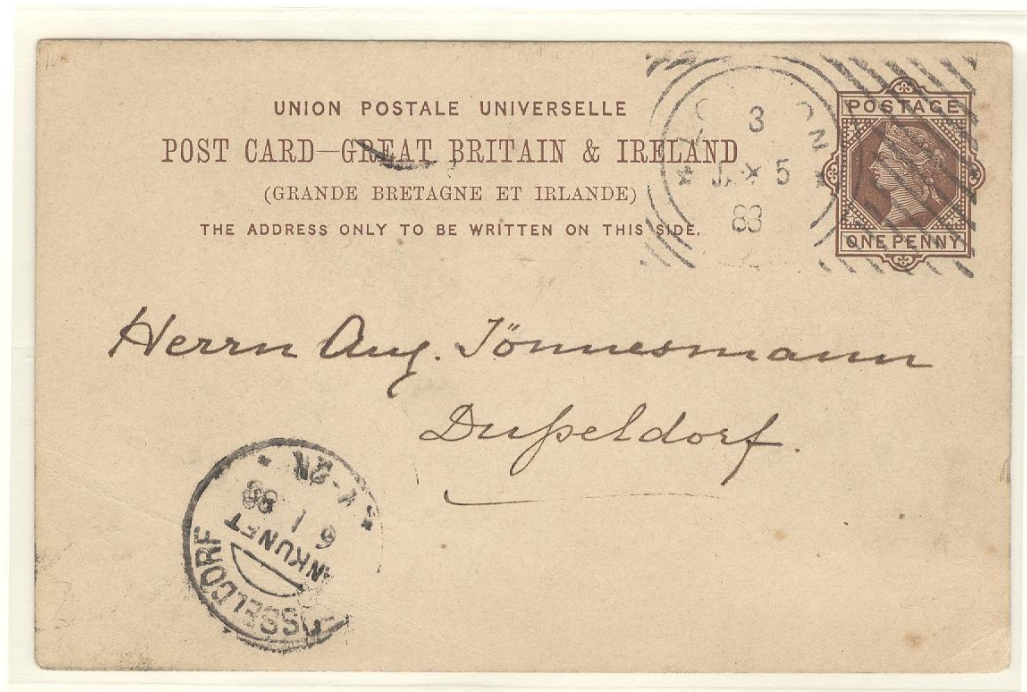 UNION POSTALE UNIVERSELLE
POST CARD—GREAT BRITAIN & IRELAND
(GRANDE BRETAGNE ET IRLANDE)
THE ADDRESS ONLY TO BE WRITTEN ON THIS SIDE.
POSTAGE
ONE PENNY
3
5
83
Herrn Aug. Tönnesmann
Dußeldorf.
ANKUNFT